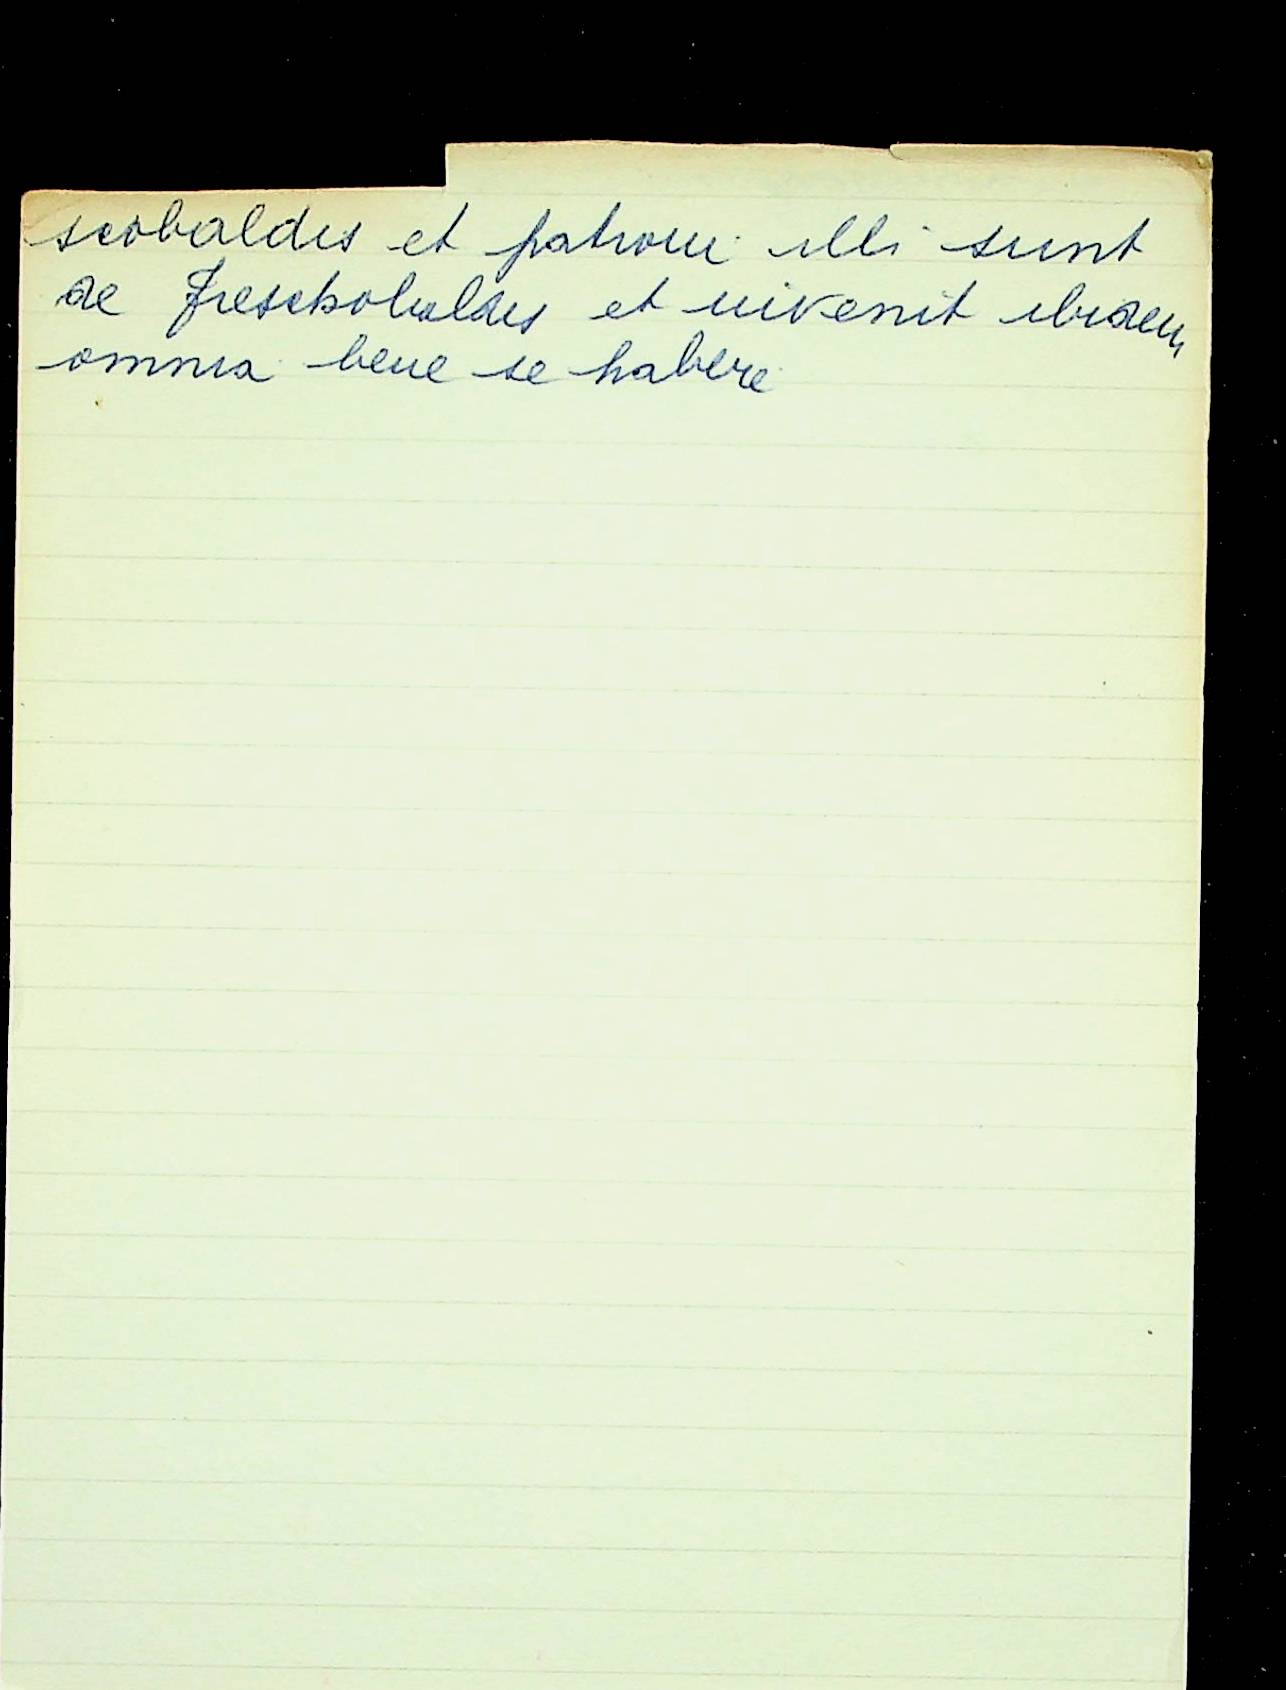 scobaldis et patroni illi sunt
de Freschobaldis et invenit ibidem
omnia bene se habere